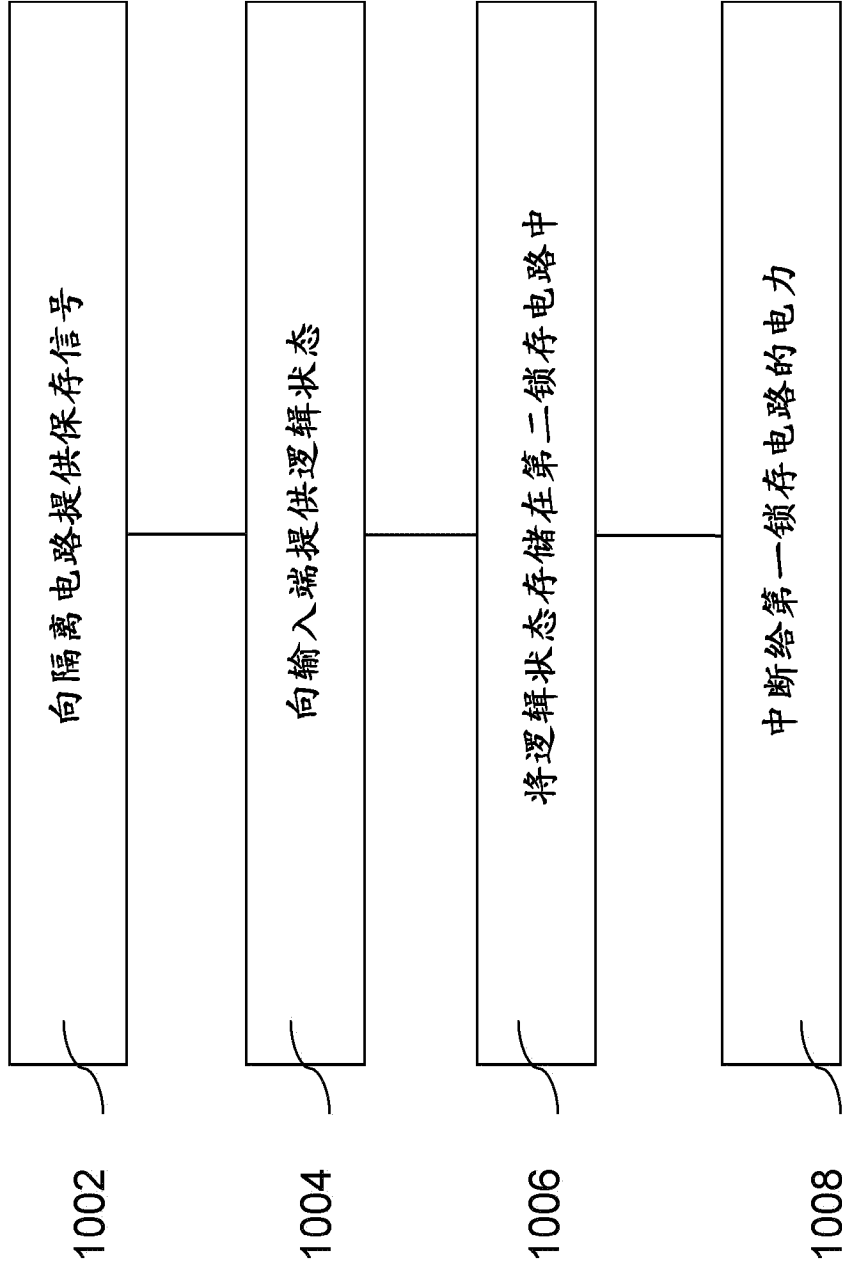 1002
向隔离电路提供保存信号
1004
向输入端提供逻辑状态
1006
将逻辑状态存储在第二锁存电路中
1008
中断给第一锁存电路的电力